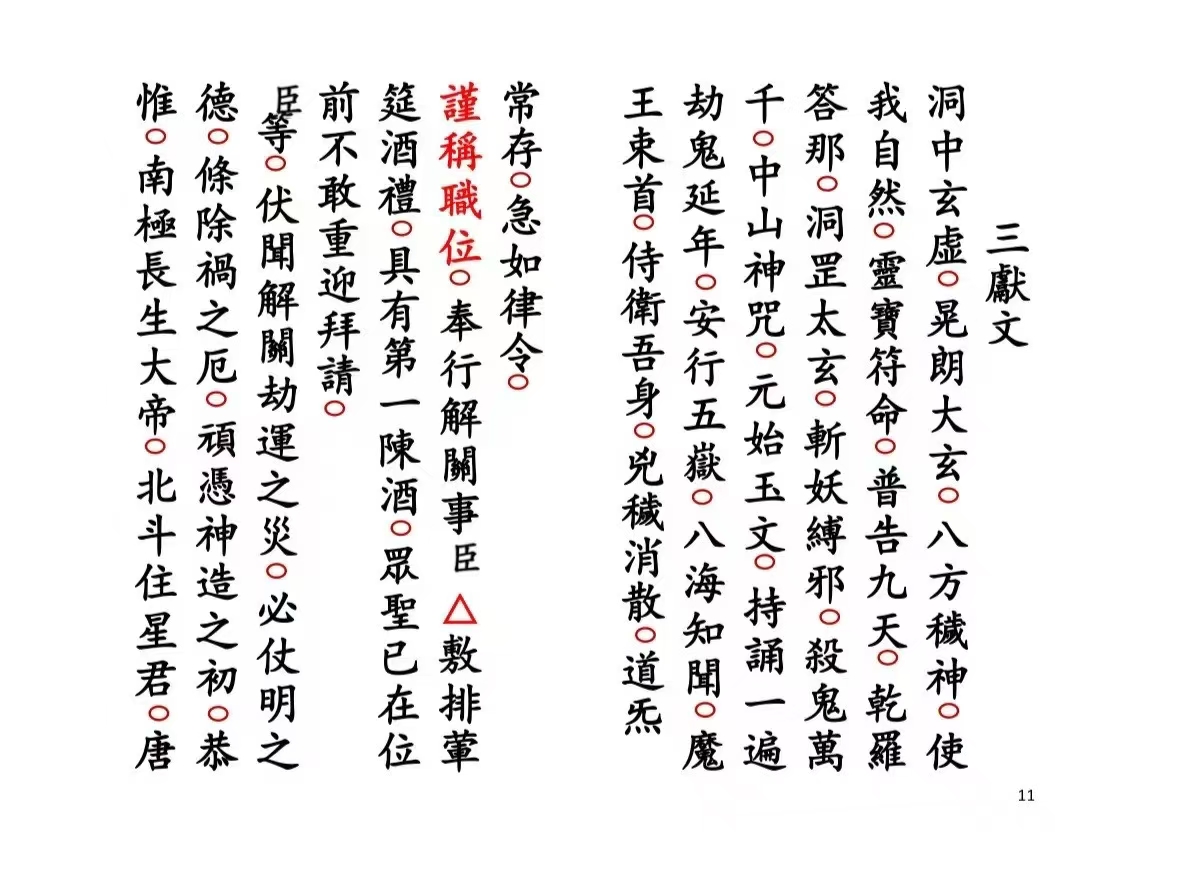 三獻文
洞中玄虛○晃朗大玄○八方穢神○使
我自然○靈寶符命○普告九天○乾羅
答那○洞罡太玄○斬妖縛邪○殺鬼萬
千○中山神咒○元始玉文○持誦一遍
劫鬼延年○安行五嶽○八海知聞○魔
王束首○侍衛吾身○兇穢消散○道炁
常存○急如律令○
謹稱職位○奉行解關事臣△敷排葷
筵酒禮○具有第一陳酒○眾聖已在位
前不敢重迎拜請○
臣等○伏聞解關劫運之災○必仗明之
德○條除禍之厄○頑憑神造之初○恭
惟○南極長生大帝○北斗住星君○唐
11